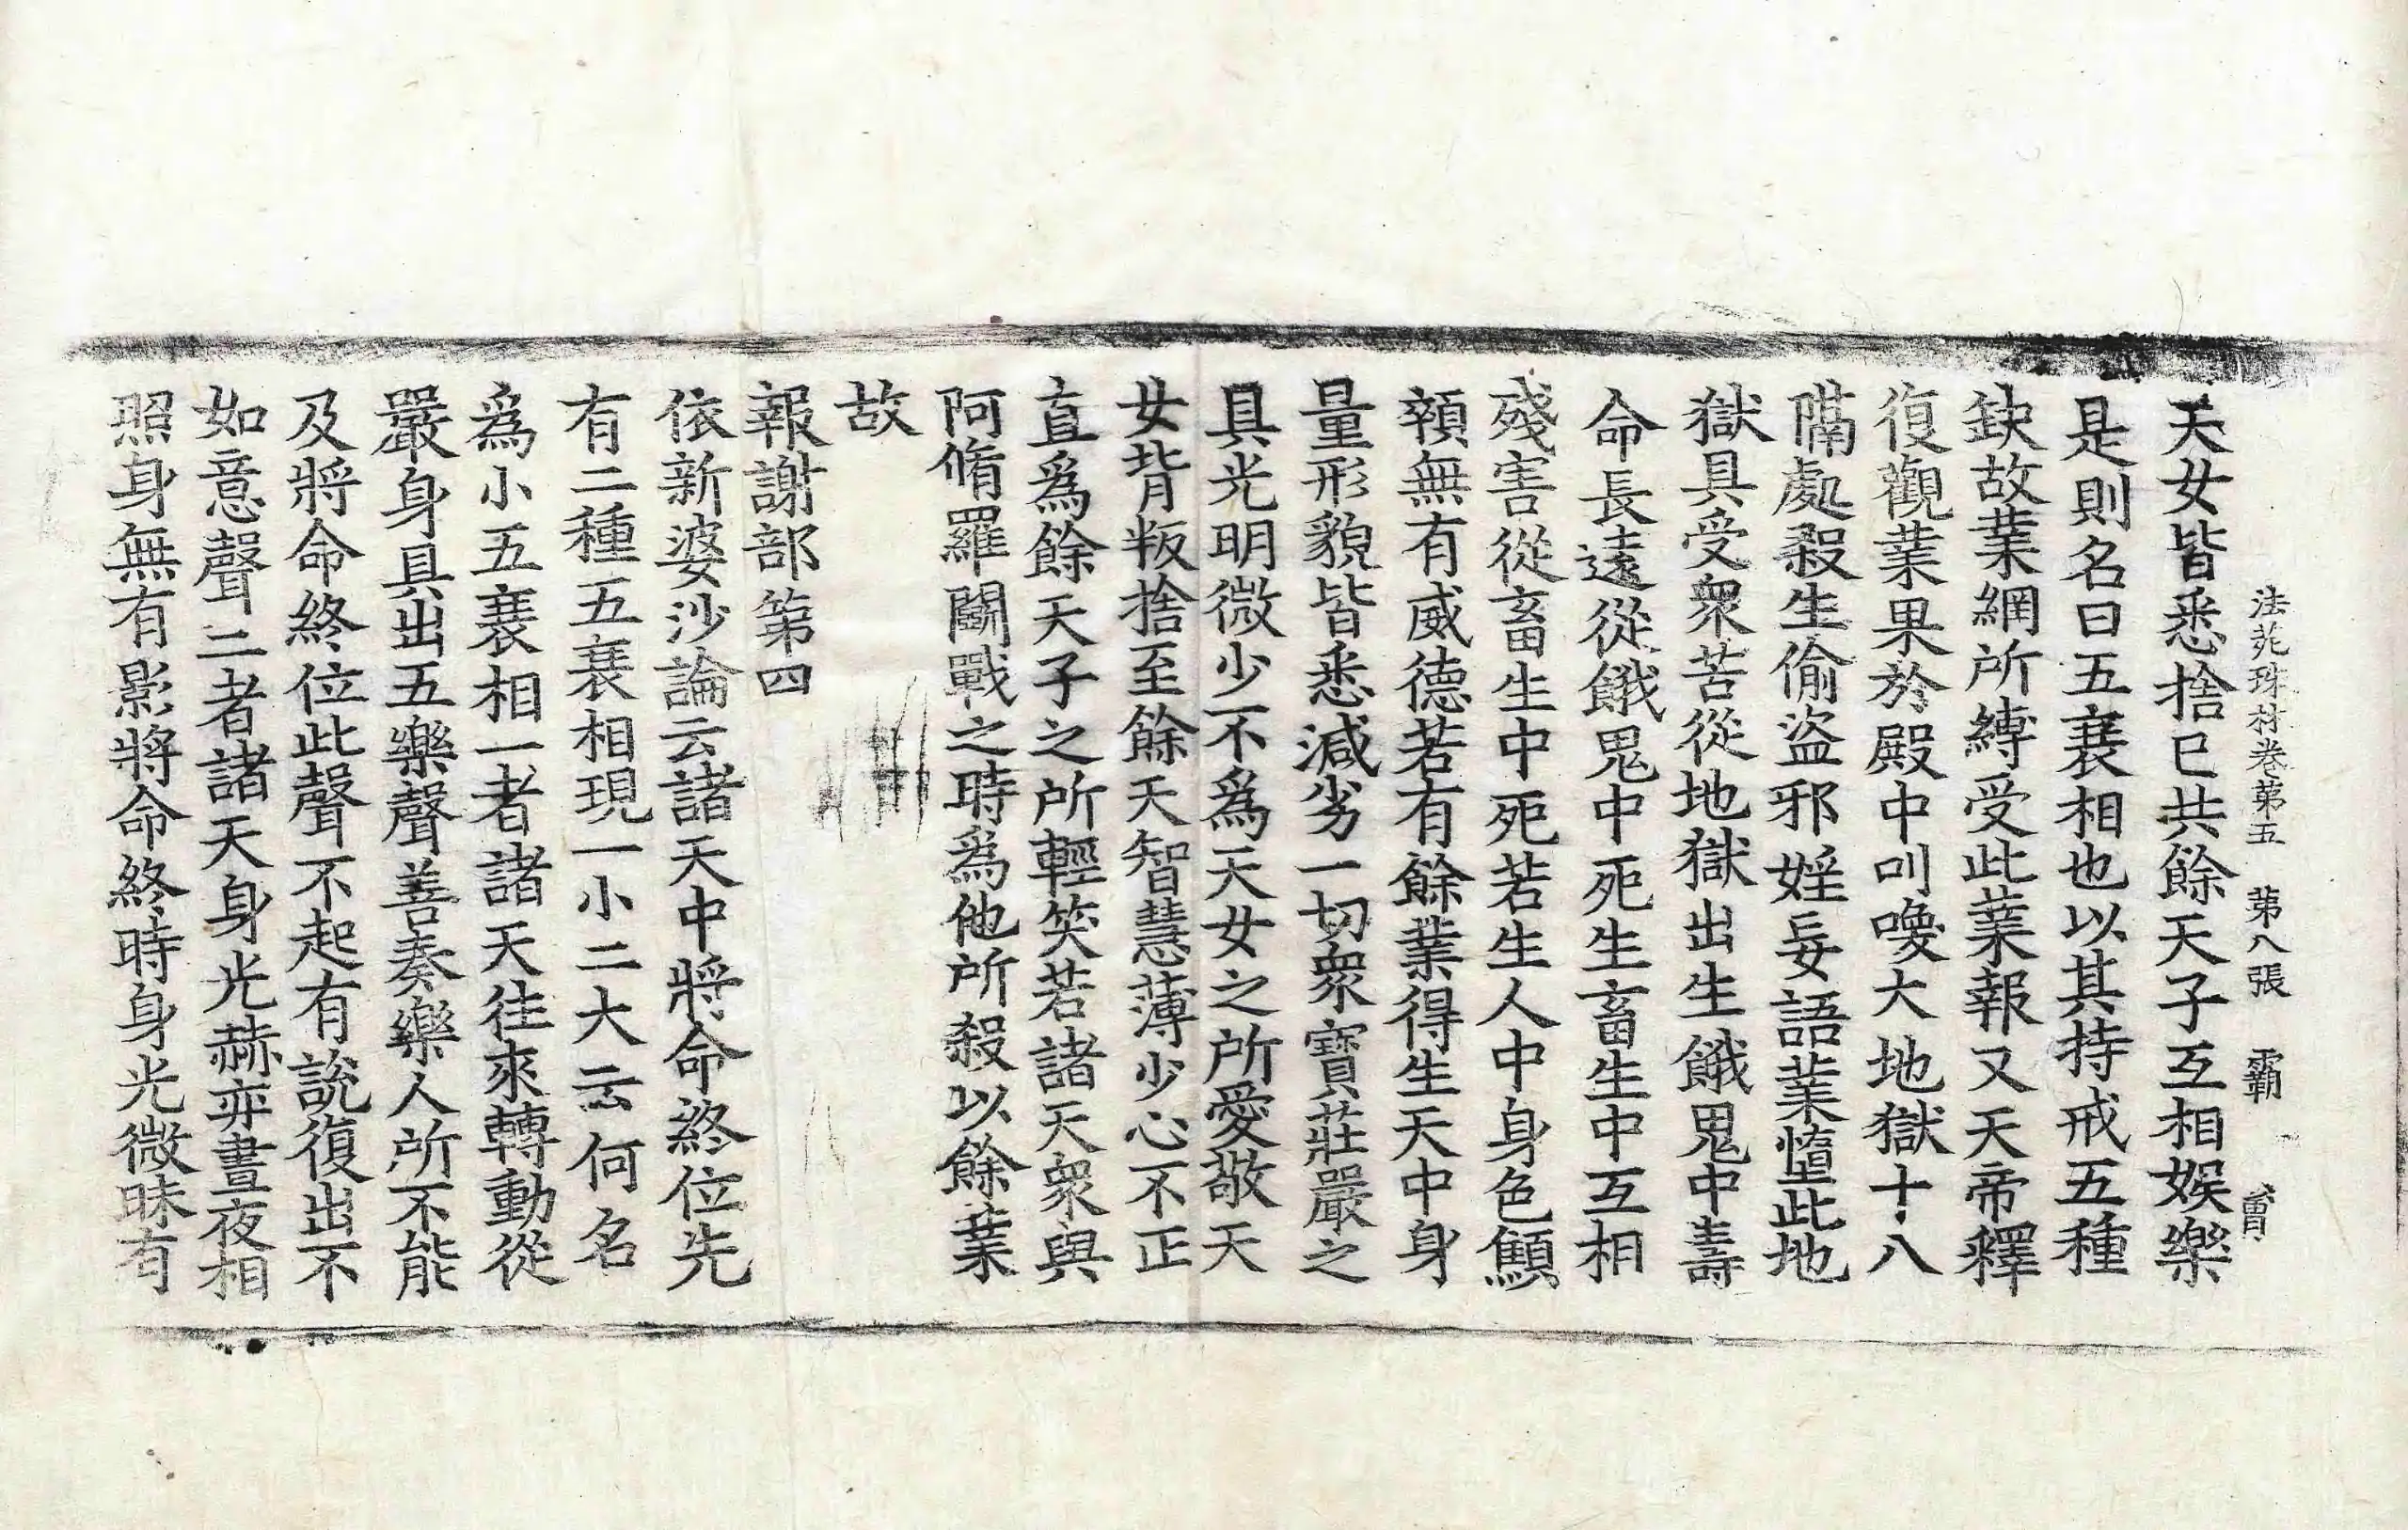 法苑珠林卷第五 第八張 霸
天女皆悉捨已共餘天子互相娛樂
是則名曰五衰相也以其持戒五種
䤼故業網所縛受此業報又天帝釋
復觀業果於殿中叫喚大地獄十八
隔處殺生偷盜邪婬妄語業墮此地
獄具受衆苦從地獄出生餓鬼中壽
命長遠從餓鬼中死生畜生中互相
殘害從畜生中死若生人中身色顦
顇無有威德若有餘業得生天中身
量形貌皆悉減劣一切衆寶莊嚴之
具光明微少不為天女之所愛敬天
女背叛捨至餘天智慧薄少心不正
直為餘天子之所輕笑若諸天衆與
阿脩羅鬪戰之時為他所殺以餘業
故
報謝部第四
依新婆沙論云諸天中將命終位先
有二種五衰相現一小二大云何名
為小五衰相一者諸天往來轉動從
嚴身具出五樂聲善奏樂人所不能
及將命終位此聲不起有說復出不
如意聲二者諸天身光赫弈晝夜相
照身無有影將命終時身光微昧有